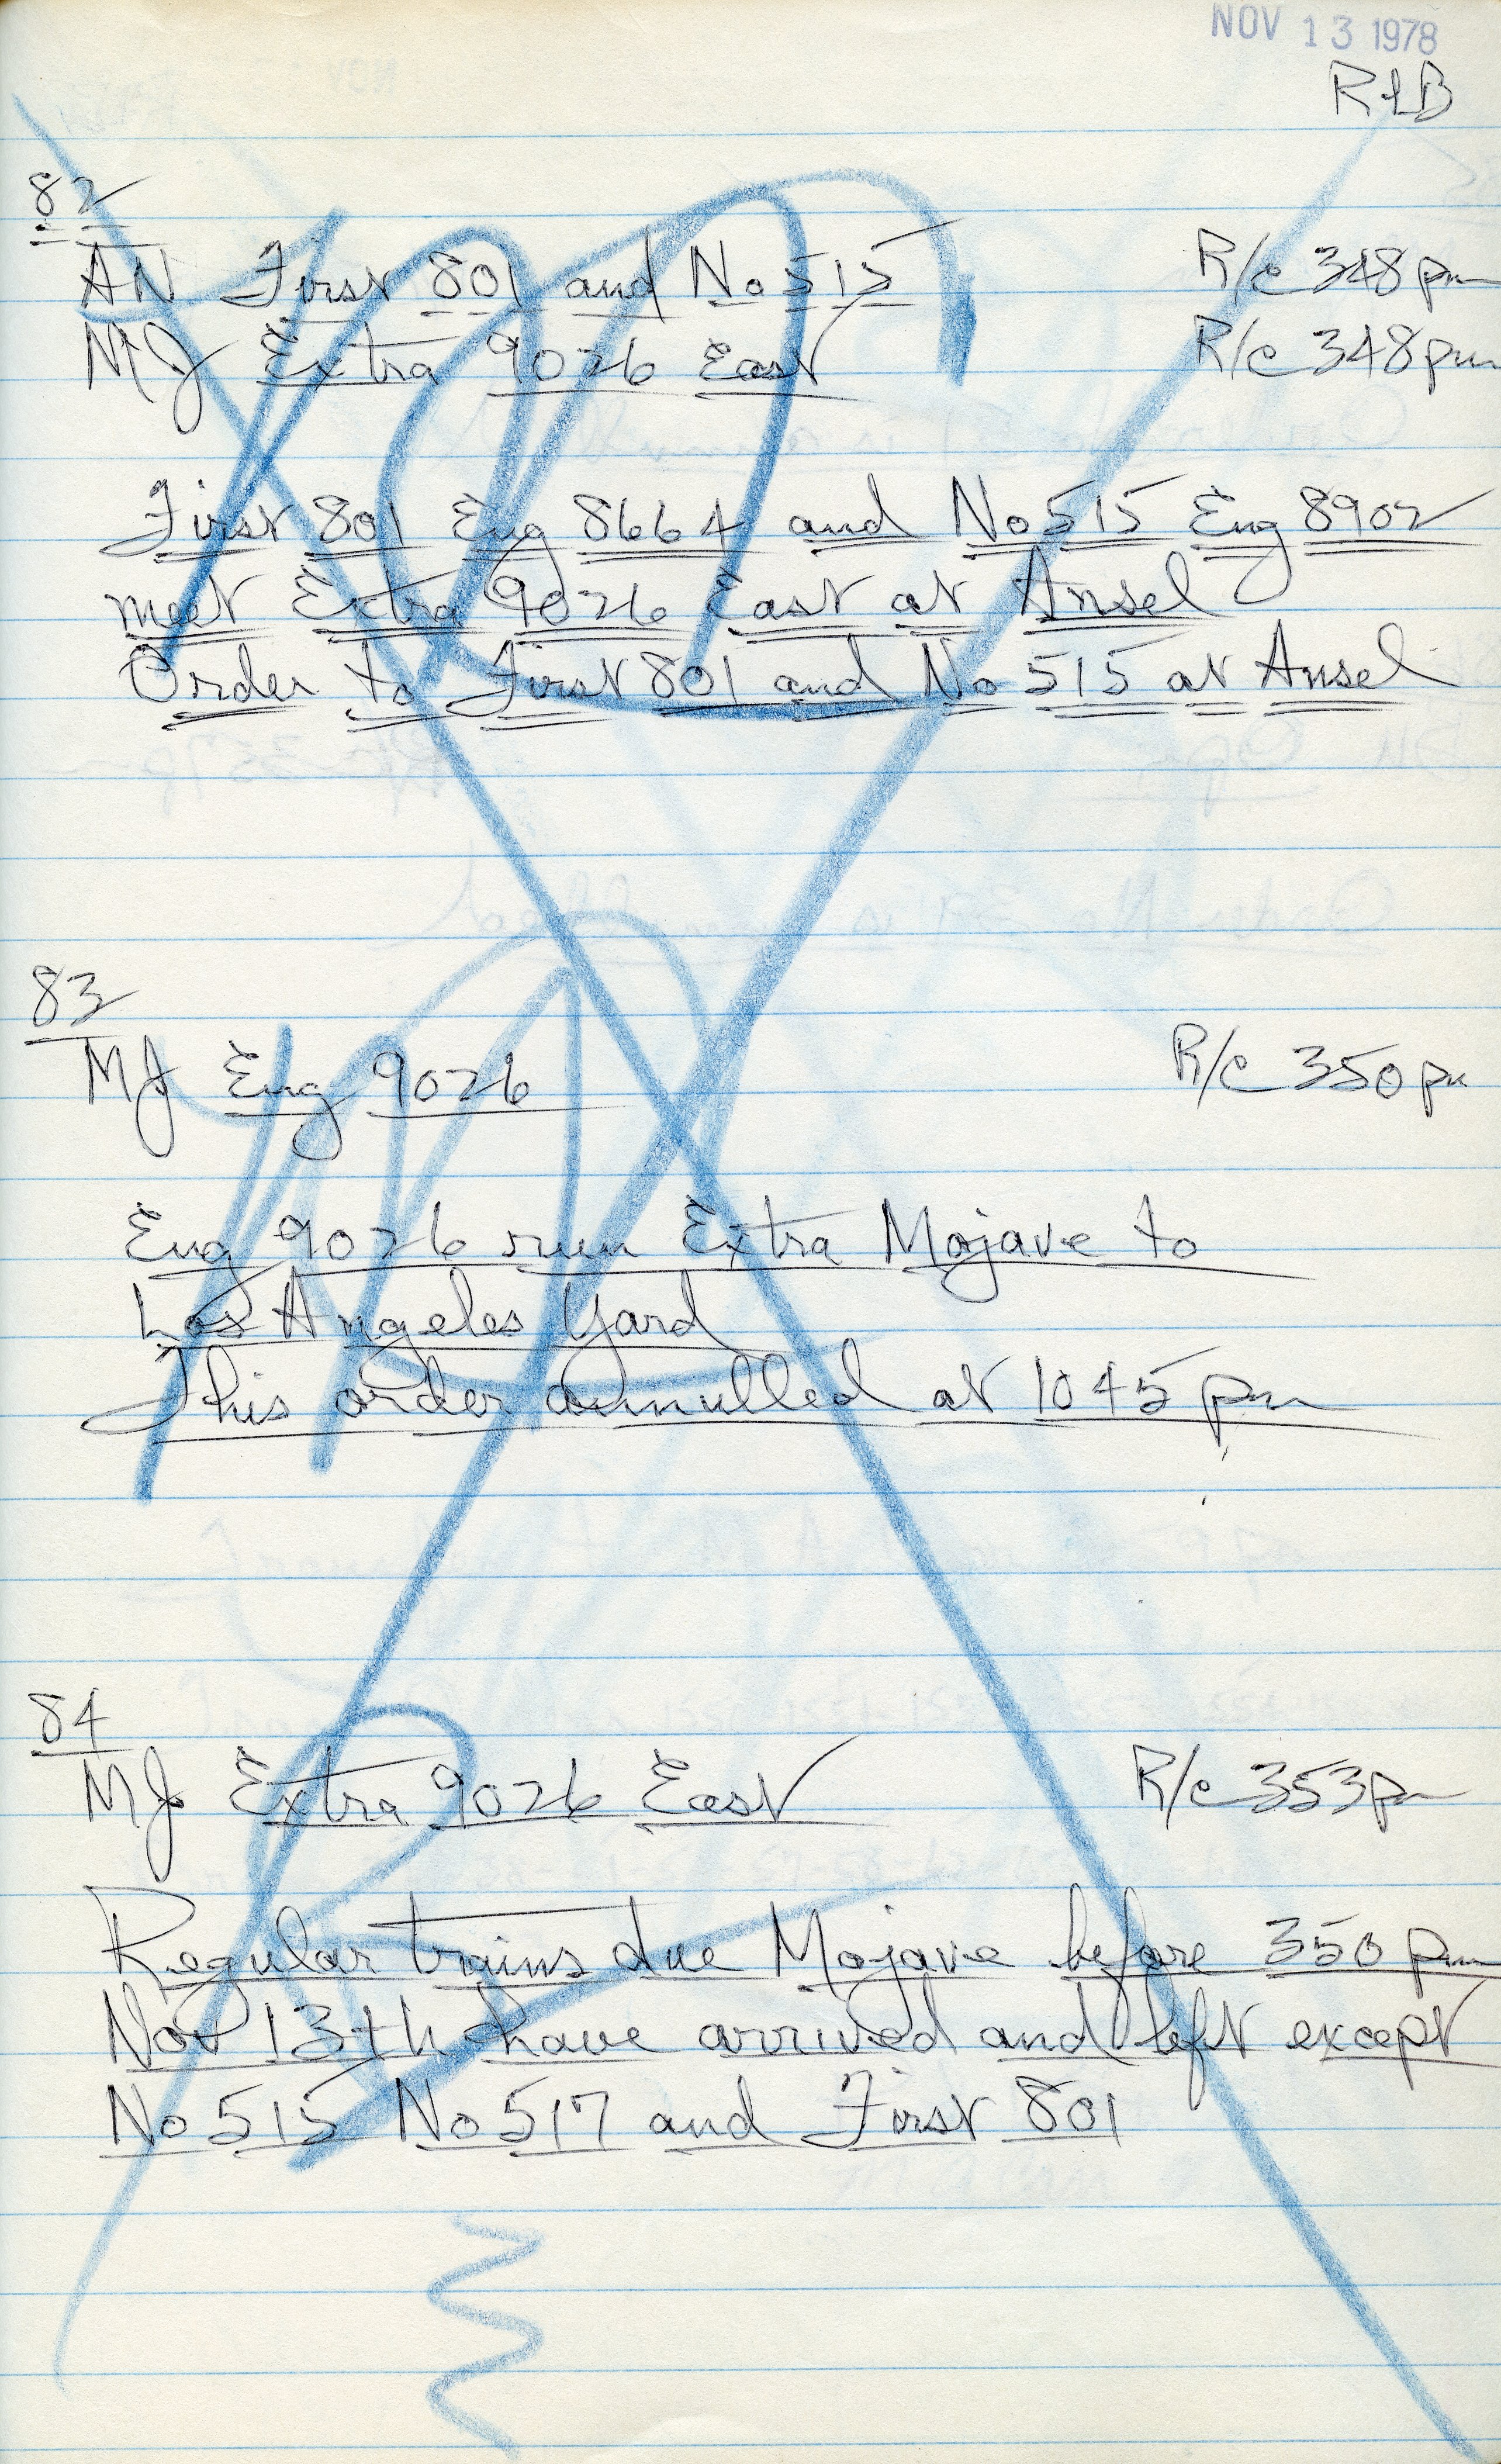 NOV 13 1978
RLB
82
AN First 801 and No 515 R/c 348pm
MJ Extra 9026 East R/c 348pm
First 801 Eng 8664 and No 515 Eng 8902
meet Extra 9026 East at Ansel
Order to First 801 and No 515 at Ansel
83
MJ Eng 9026 R/c 350pm
Eng 9026 run Extra Mojave to
Los Angeles Yard
This order annulled at 1045pm
84
MJ Extra 9026 East R/c 353pm
Regular trains due Mojave before 350pm
Nov 13th have arrived and left except
No 515 No 517 and First 801